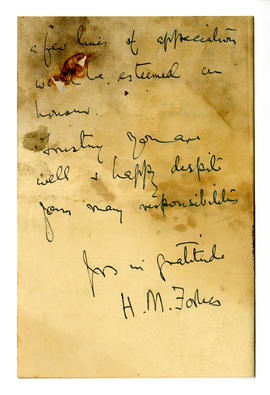 a few lines of appreciation
would be esteemed an
honour.
Trusting you are
well & happy despite
your many responsibilities
yrs in gratitude
H. M. Forbes